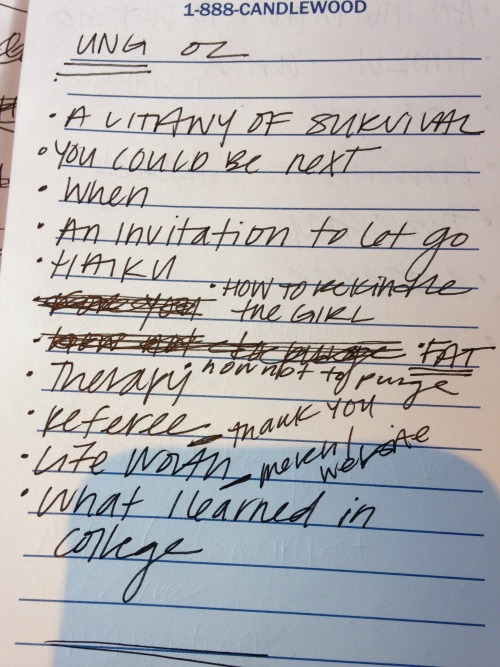 1-888-CANDLEWOOD
UNG 02
• A LITANY OF SURVIVAL
• YOU COULD BE next
• When
• An Invitation to Let go
• HAIKU
• HOW TO REKINDLE
THE GIRL
• FAT
• Therapy • how not to purge
• Referee - thank you
• Life Worth - merch/
website
• What I learned in
college